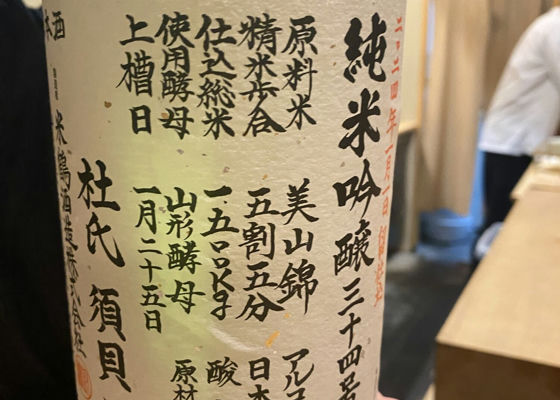 二〇二四年一月一日
純米吟醸三十四号
原料米 美山錦 アルコ
精米歩合 五割五分 日本
仕込総米 一、五〇〇Kg 酸
使用酵母 山形酵母 原材
上槽日 一月二十五日
杜氏 須貝
米鶴酒造株式会社
本酒